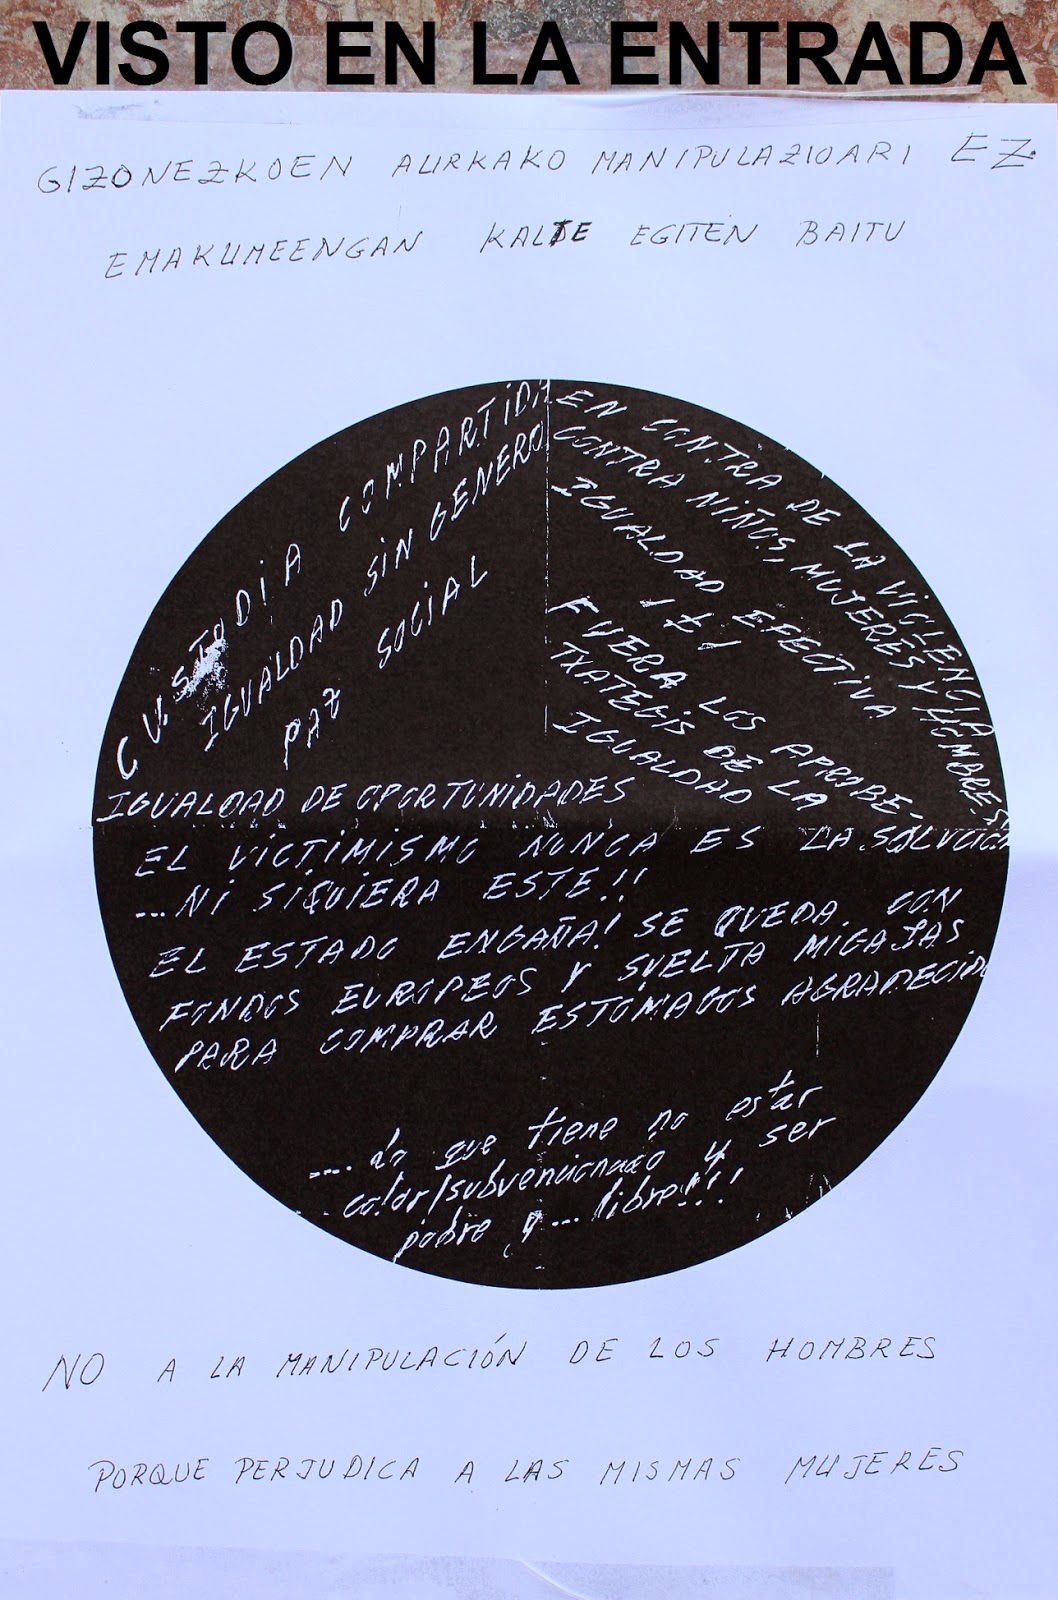 VISTO EN LA ENTRADA
GIZONEZKOEN AURKAKO MANIPULAZIOARI EZ
EMAKUMEENGAN KALTE EGITEN BAITU
CUSTODIA COMPARTIDA
IGUALDAD SIN GENERO
PAZ SOCIAL
EN CONTRA DE LA VIOLENCIA
CONTRA NIÑOS, MUJERES Y HOMBRES
IGUALDAD EFECTIVA
1 ≠ 1
FUERA LOS APROBE-
TXATEGIS DE LA
IGUALDAD
IGUALDAD DE OPORTUNIDADES
EL VICTIMISMO NUNCA ES LA SOLUCION
...NI SIQUIERA ESTE!!
EL ESTADO ENGAÑA! SE QUEDA CON
FONDOS EUROPEOS Y SUELTA MIGAJAS
PARA COMPRAR ESTÓMAGOS AGRADECIDO
.... lo que tiene no estar
color/subvencionado y ser
pobre y... libre!!!
NO A LA MANIPULACIÓN DE LOS HOMBRES
PORQUE PERJUDICA A LAS MISMAS MUJERES